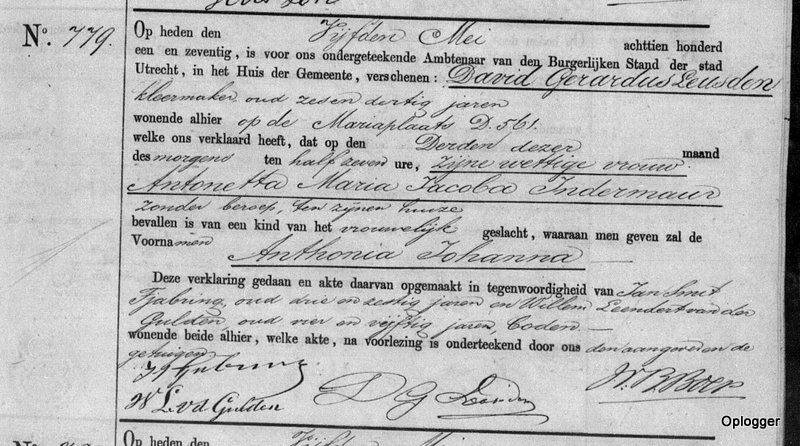 N.º 779.
Op heden den Vijfden Mei achttien honderd
een en zeventig, is voor ons ondergeteekende Ambtenaar van den Burgerlijken Stand der stad
Utrecht, in het Huis der Gemeente, verschenen: David Gerardus Leusden
kleermaker, oud zes en dertig jaren
wonende alhier op de Mariaplaats D. 561.
welke ons verklaard heeft, dat op den Derden dezer maand
des morgens ten half zeven ure, zijne wettige vrouw
Antonetta Maria Jacoba Indermaur
zonder beroep, ten zijnen huize
bevallen is van een kind van het vrouwelijk geslacht, waaraan men geven zal de
Voornamen Anthonia Johanna
Deze verklaring gedaan en akte daarvan opgemaakt in tegenwoordigheid van Jan Smit
oud drie en zestig jaren en Willem Leendert van der
Gulden oud vier en vijftig jaren, boden
wonende beide alhier, welke akte, na voorlezing is onderteekend door ons den aangever en de
getuigen
W L v d Gulden
D G Leusden
Oplogger
Op heden den Vijfden Mei